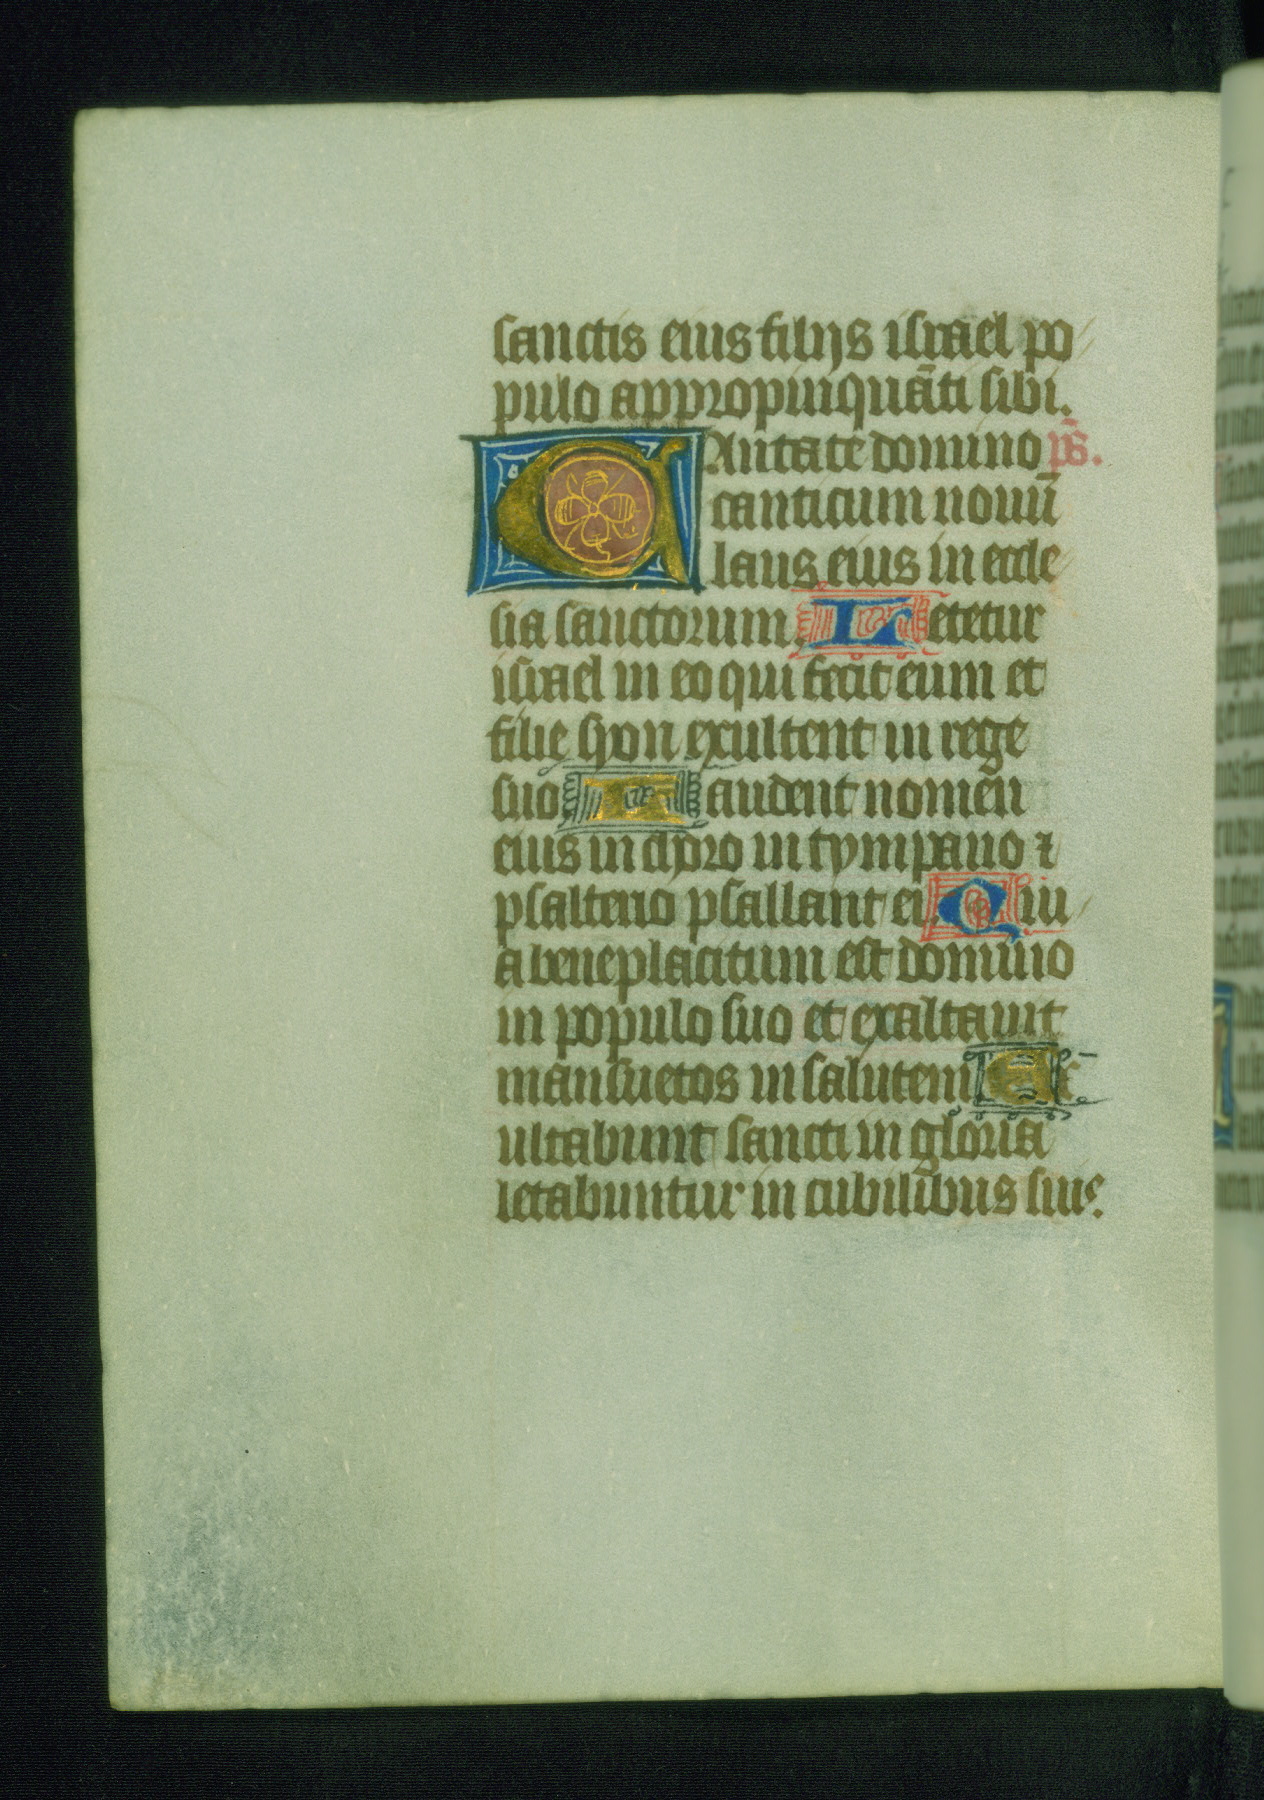 sanctis eius filijs israel po
pulo appropinquāti sibi.
CAntate domino ps̄.
canticum nouū
laus eius in eccle
sia sanctorum. Letetur
israel in eo qui fecit eum et
filie syon exultent in rege
suo Laudent nomen
eius in choro in tympano ⁊
psalterio psallant ei. Qui
a beneplacitum est domino
in populo suo et exaltauit
mansuetos in salutem Ex
ultabunt sancti in gloria
letabuntur in cubilibus suis.